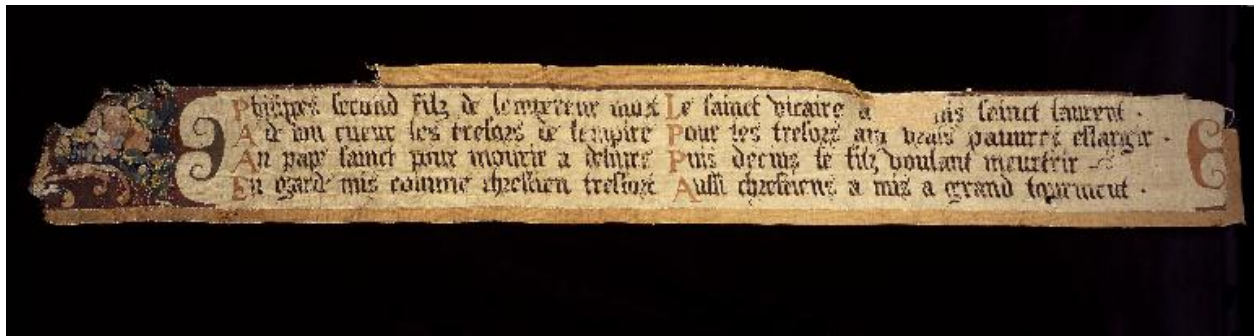 Phlippes second filz de lempereur mort
A de bon cueur les tresors de lempire
Au pape sainct pour mourir a deliure
En garde mis comme chrestien tresfort
Le sainct vicaire a mis sainct laurent ·
Pour les tresors aux vrais pauures eslargir ·
Puis decius le filz voulant meurtrir
Aussi chrestiens a mis a grand tourment ·